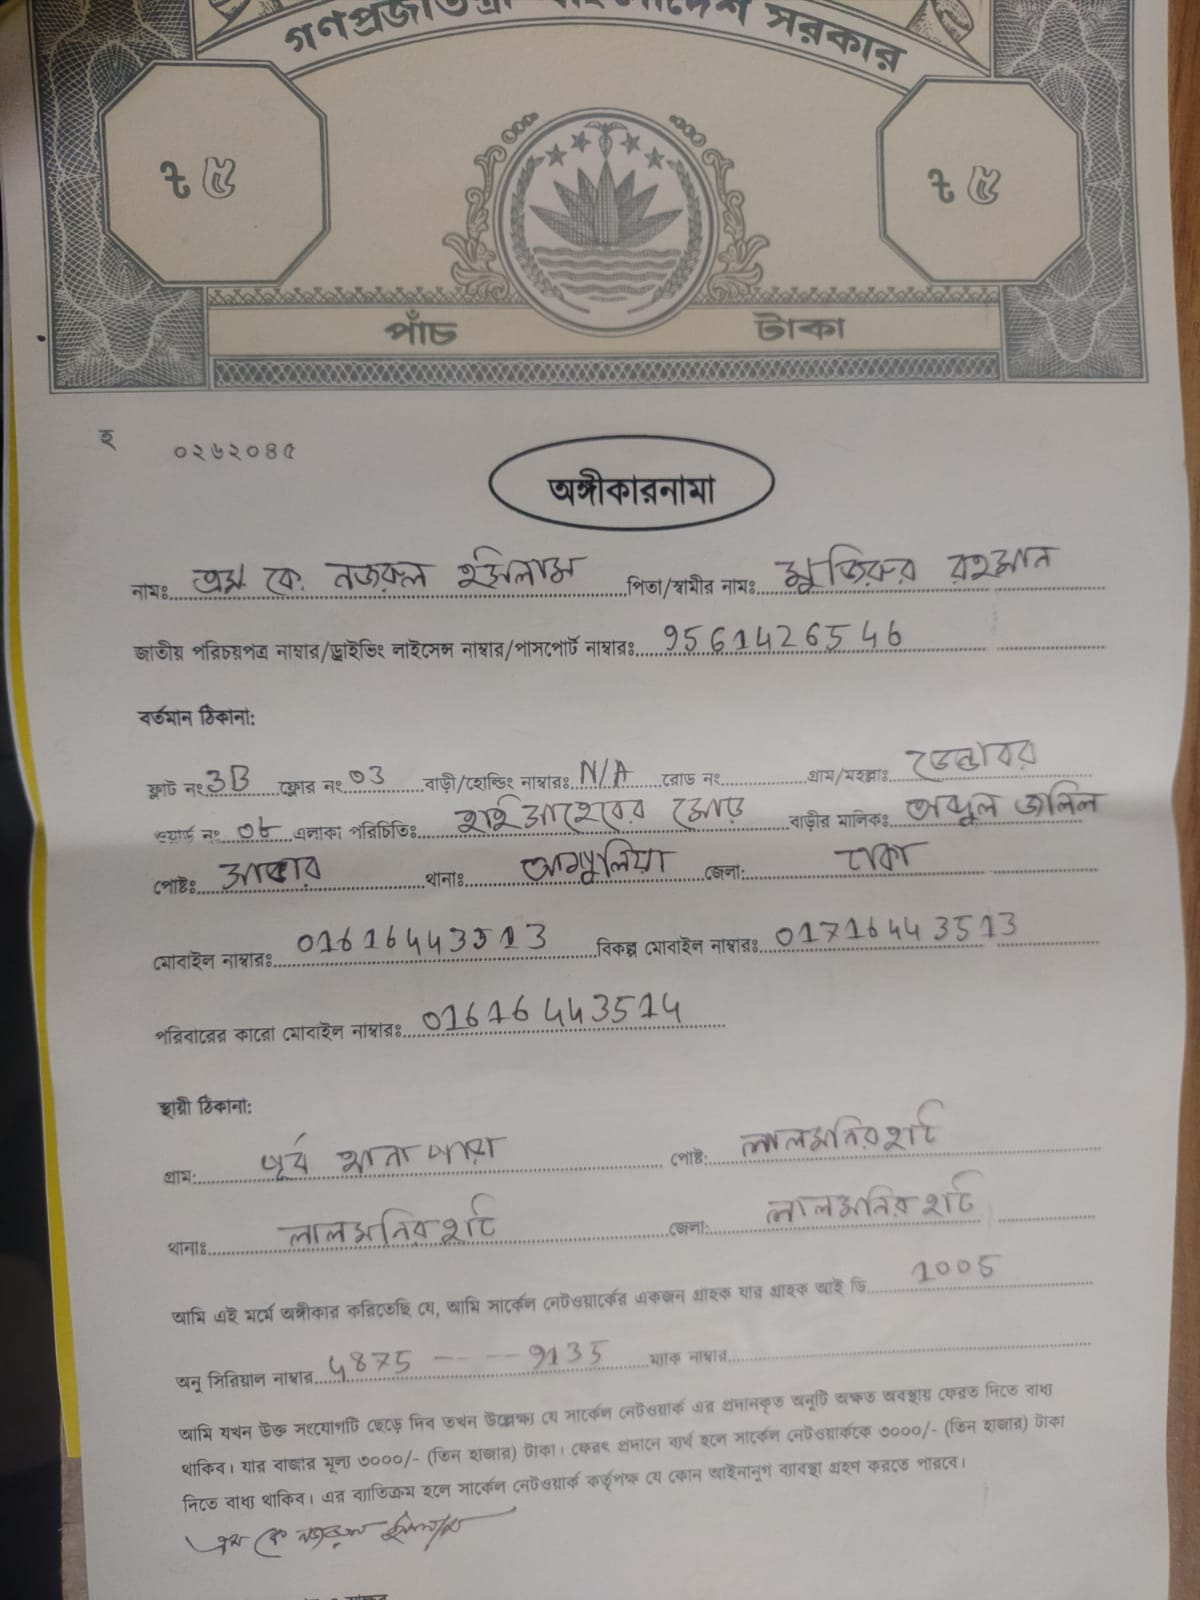 গণপ্রজাতন্ত্রী বাংলাদেশ সরকার
৳ ৫ ৳ ৫
পাঁচ টাকা
হ ০২৬২০৪৫
অঙ্গীকারনামা
নামঃ এম কে. নজরুল ইসলাম পিতা/স্বামীর নামঃ মুজিবুর রহমান
জাতীয় পরিচয়পত্র নাম্বার/ড্রাইভিং লাইসেন্স নাম্বার/পাসপোর্ট নাম্বারঃ 9561426546
বর্তমান ঠিকানা:
ফ্লাট নং 3B ফ্লোর নং 03 বাড়ী/হোল্ডিং নাম্বারঃ N/A রোড নং গ্রাম/মহল্লাঃ
ওয়ার্ড নং 08 এলাকা পরিচিতিঃ মোড় বাড়ীর মালিকঃ আব্দুল জলিল
পোষ্টঃ সাভার থানাঃ আশুলিয়া জেলা: ঢাকা
মোবাইল নাম্বারঃ 01616443513 বিকল্প মোবাইল নাম্বারঃ 01716443513
পরিবারের কারো মোবাইল নাম্বারঃ 01616443514
স্থায়ী ঠিকানা:
গ্রাম: পূর্ব থানা পাড়া পোষ্ট: লালমনিরহাট
থানাঃ লালমনিরহাট জেলা: লালমনিরহাট
আমি এই মর্মে অঙ্গীকার করিতেছি যে, আমি সার্কেল নেটওয়ার্কের একজন গ্রাহক যার গ্রাহক আই ডি 1005
অনু সিরিয়াল নাম্বার 4875 --- --- 9135 ম্যাক নাম্বার
আমি যখন উক্ত সংযোগটি ছেড়ে দিব তখন উল্লেক্ষ্য যে সার্কেল নেটওয়ার্ক এর প্রদানকৃত অনুটি অক্ষত অবস্থায় ফেরত দিতে বাধ্য
থাকিব। যার বাজার মূল্য ৩০০০/- (তিন হাজার) টাকা। ফেরৎ প্রদানে ব্যর্থ হলে সার্কেল নেটওয়ার্ককে ৩০০০/- (তিন হাজার) টাকা
দিতে বাধ্য থাকিব। এর ব্যাতিক্রম হলে সার্কেল নেটওয়ার্ক কর্তৃপক্ষ যে কোন আইনানুগ ব্যাবস্থা গ্রহণ করতে পারবে।
এম কে নজরুল ইসলাম